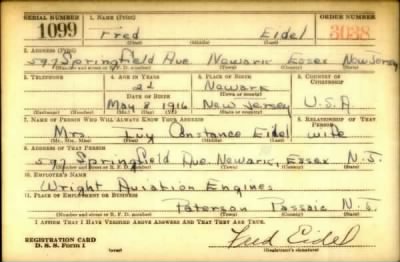 SERIAL NUMBER 1. NAME (Print) ORDER NUMBER
1099 Fred Eidel 3038
(First) (Middle) (Last)
2. ADDRESS (Print)
597 Springfield Ave Newark Essex New Jersey
(Number and street or R. F. D. number) (Town) (County) (State)
3. TELEPHONE 4. AGE IN YEARS 5. PLACE OF BIRTH 6. COUNTRY OF CITIZENSHIP
Newark
DATE OF BIRTH (Town or county)
May 8 1916 New Jersey U.S.A.
(Exchange) (Number) (Mo.) (Day) (Yr.) (State or country)
7. NAME OF PERSON WHO WILL ALWAYS KNOW YOUR ADDRESS 8. RELATIONSHIP OF THAT PERSON
Mrs Ivy Constance Eidel wife
(Mr., Mrs., Miss) (First) (Middle) (Last)
9. ADDRESS OF THAT PERSON
597 Springfield Ave. Newark, Essex N.J.
(Number and street or R. F. D. number) (Town) (County) (State)
10. EMPLOYER'S NAME
Wright Aviation Engines
11. PLACE OF EMPLOYMENT OR BUSINESS
Paterson Passaic N.J.
(Number and street or R. F. D. number) (Town) (County) (State)
I AFFIRM THAT I HAVE VERIFIED ABOVE ANSWERS AND THAT THEY ARE TRUE.
REGISTRATION CARD
D. S. S. Form 1 (over) Fred Eidel